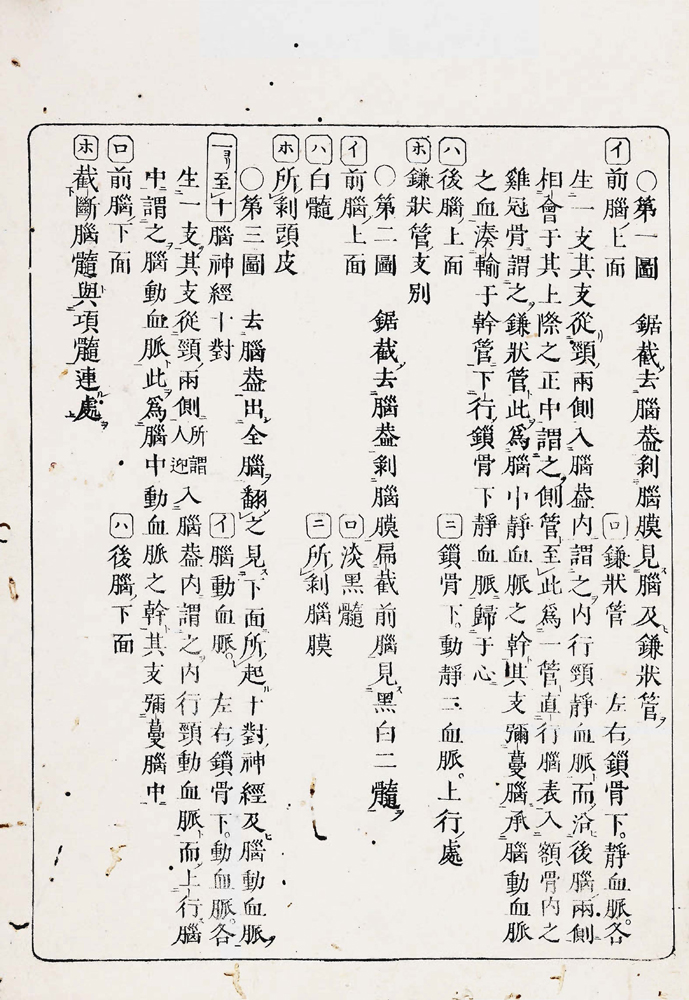 ○第一圖 鋸截去腦蓋剥腦膜見腦及鎌狀管
イ前腦上面 ロ鎌狀管 左右鎖骨下。靜血脈。各
生一支其支從頸兩側入腦蓋内謂之内行頸靜血脈而沿後腦兩側
相會于其上際之正中謂之側管至此爲一管直行腦表入額骨内之
雞冠骨謂之鎌狀管此爲腦中靜血脈之幹其支彌蔓腦承腦動血脈
之血湊輸于幹管下行鎖骨下靜血脈歸于心
ハ後腦上面 ニ鎖骨下。動靜二血脈。上行處
ホ鎌狀管支別
○第二圖 鋸截去腦蓋剥腦膜扁截前腦見黑白二髓
イ前腦上面 ロ淡黑髓
ハ白髓 ニ所剥腦膜
ホ所剥頭皮
○第三圖 去腦蓋出全腦翻之見下面所起十對神經及腦動血脈
一ヨリ至十腦神經十對 イ腦動血脈。 左右鎖骨下。動血脈。各
生一支其支從頸兩側所謂人迎入腦蓋内謂之内行頸動血脈而上行腦
中謂之腦動血脈此爲腦中動血脈之幹其支彌蔓腦中
ロ前腦下面 ハ後腦下面
ホ截斷腦髓與項髓連處